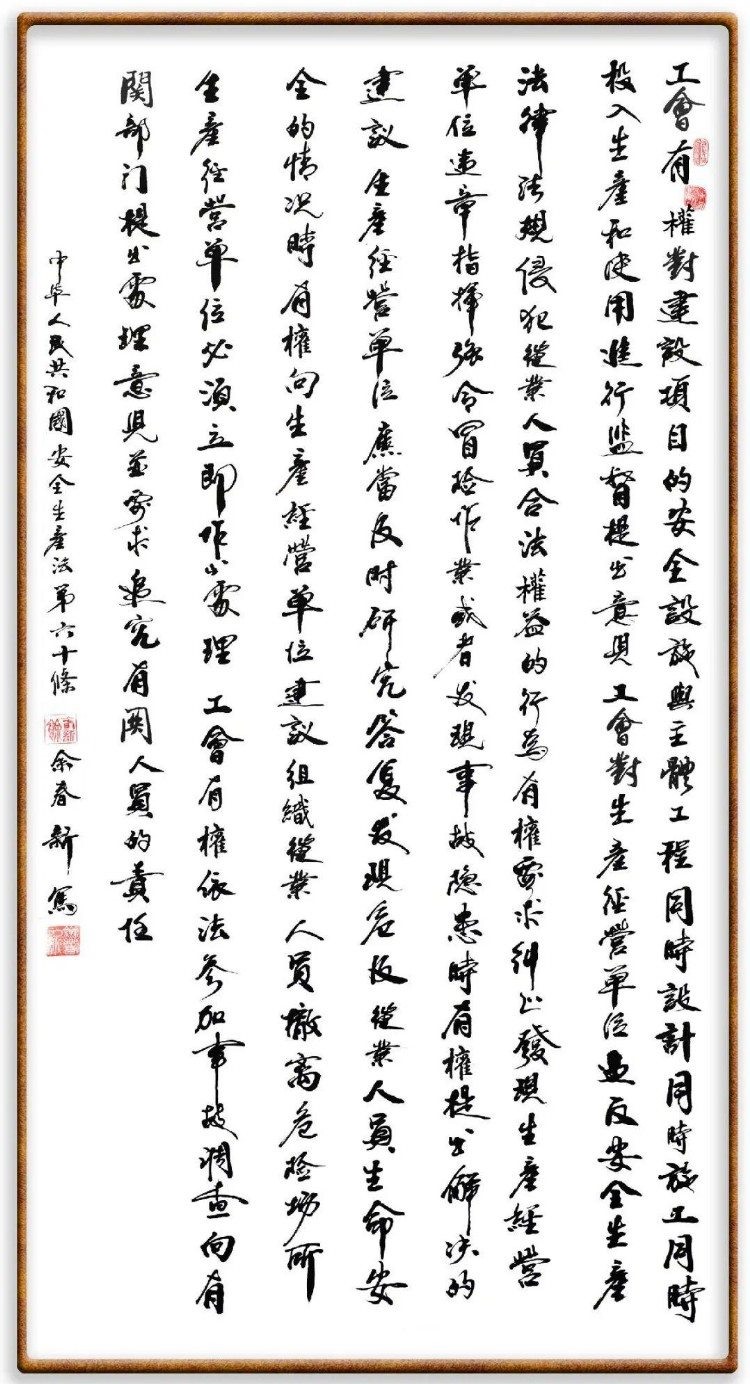 工會有權對建設項目的安全設施與主體工程同時設計同時施工同時
投入生産和使用進行监督提出意見工會對生産經營單位違反安全生産
法律法規侵犯從業人員合法權益的行為有權要求糾正發現生産經營
單位違章指揮强令冒险作業或者发現事故隐患時有權提出解决的
建议生産經營單位應當及時研究答复发現危及從業人員生命安
全的情况時有權向生産經營單位建议組織從業人員撤离危险場所
生産經營單位必須立即作出處理工會有權依法參加事故調查向有
関部门提出處理意見並要求追究有関人員的責任
中華人民共和國安全生産法第六十條
余春新寫